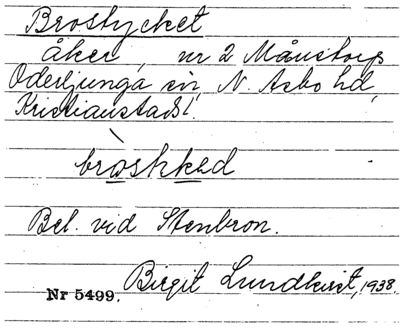 Brostycket
åker, nr 2 Månstorp
Oderljunga sn, N. Åsbo hd,
Kristianstads l.
bròskked
Bel. vid Stenbron.
Birgit Lundkvist, 1938.
Nr 5499.